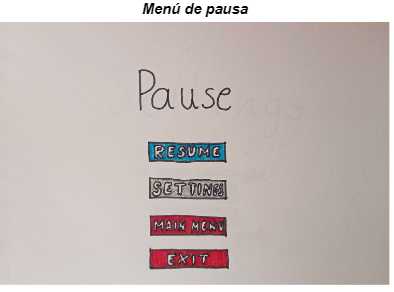 Menú de pausa
Pause
RESUME
SETTINGS
MAIN MENU
EXIT